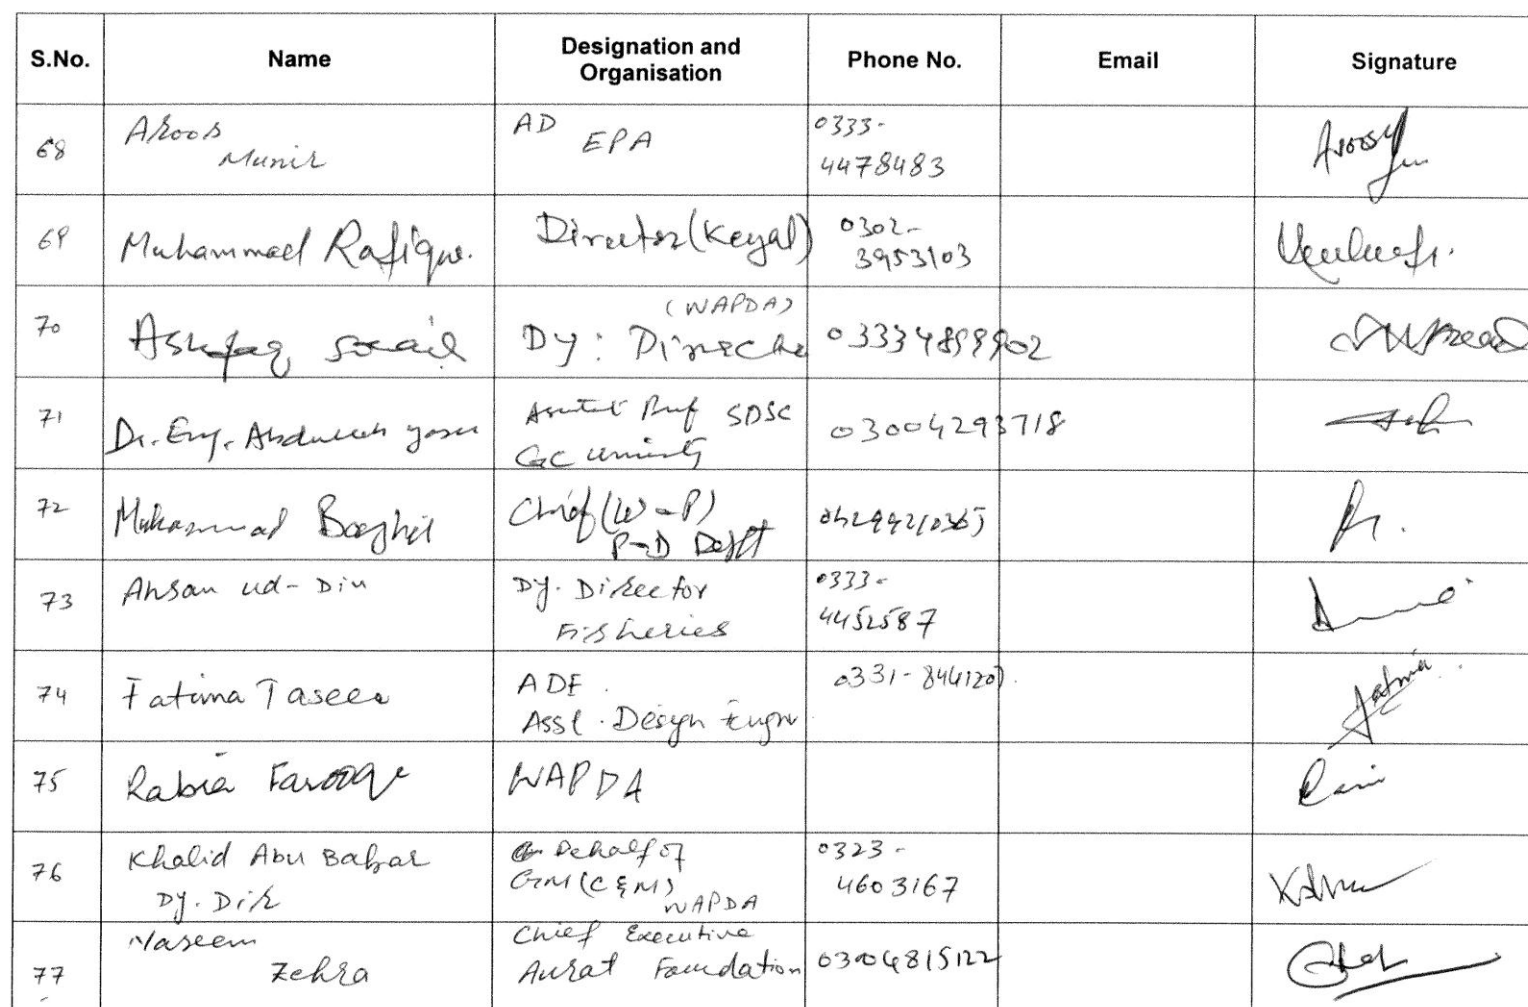 S.No. Name Designation and Organisation Phone No. Email Signature
68 Aroos Munir AD EPA 0333-4478483
69 Muhammad Rafique. Director (Keyal) 0302-3953103
70 Ashfaq (WAPDA) Dy: Director
71 Dr. Eng. Abdullah Yasar Prof SDSC GC University 03004293718
72 Muhammad Chief (W-P) P-D Deptt
73 Ahsan ud-Din Dy. Director Fisheries 0333-4452587
74 Fatima Taseer ADE Asst. Design Engr 0331-8441207 Fatima
75 Rabia Farooq WAPDA
76 Khalid Abu Babar Dy. Dir Behalf of GM (C&M) WAPDA 0323-4603167
77 Naseem Zehra Chief Executive Aurat Foundation 03004815122